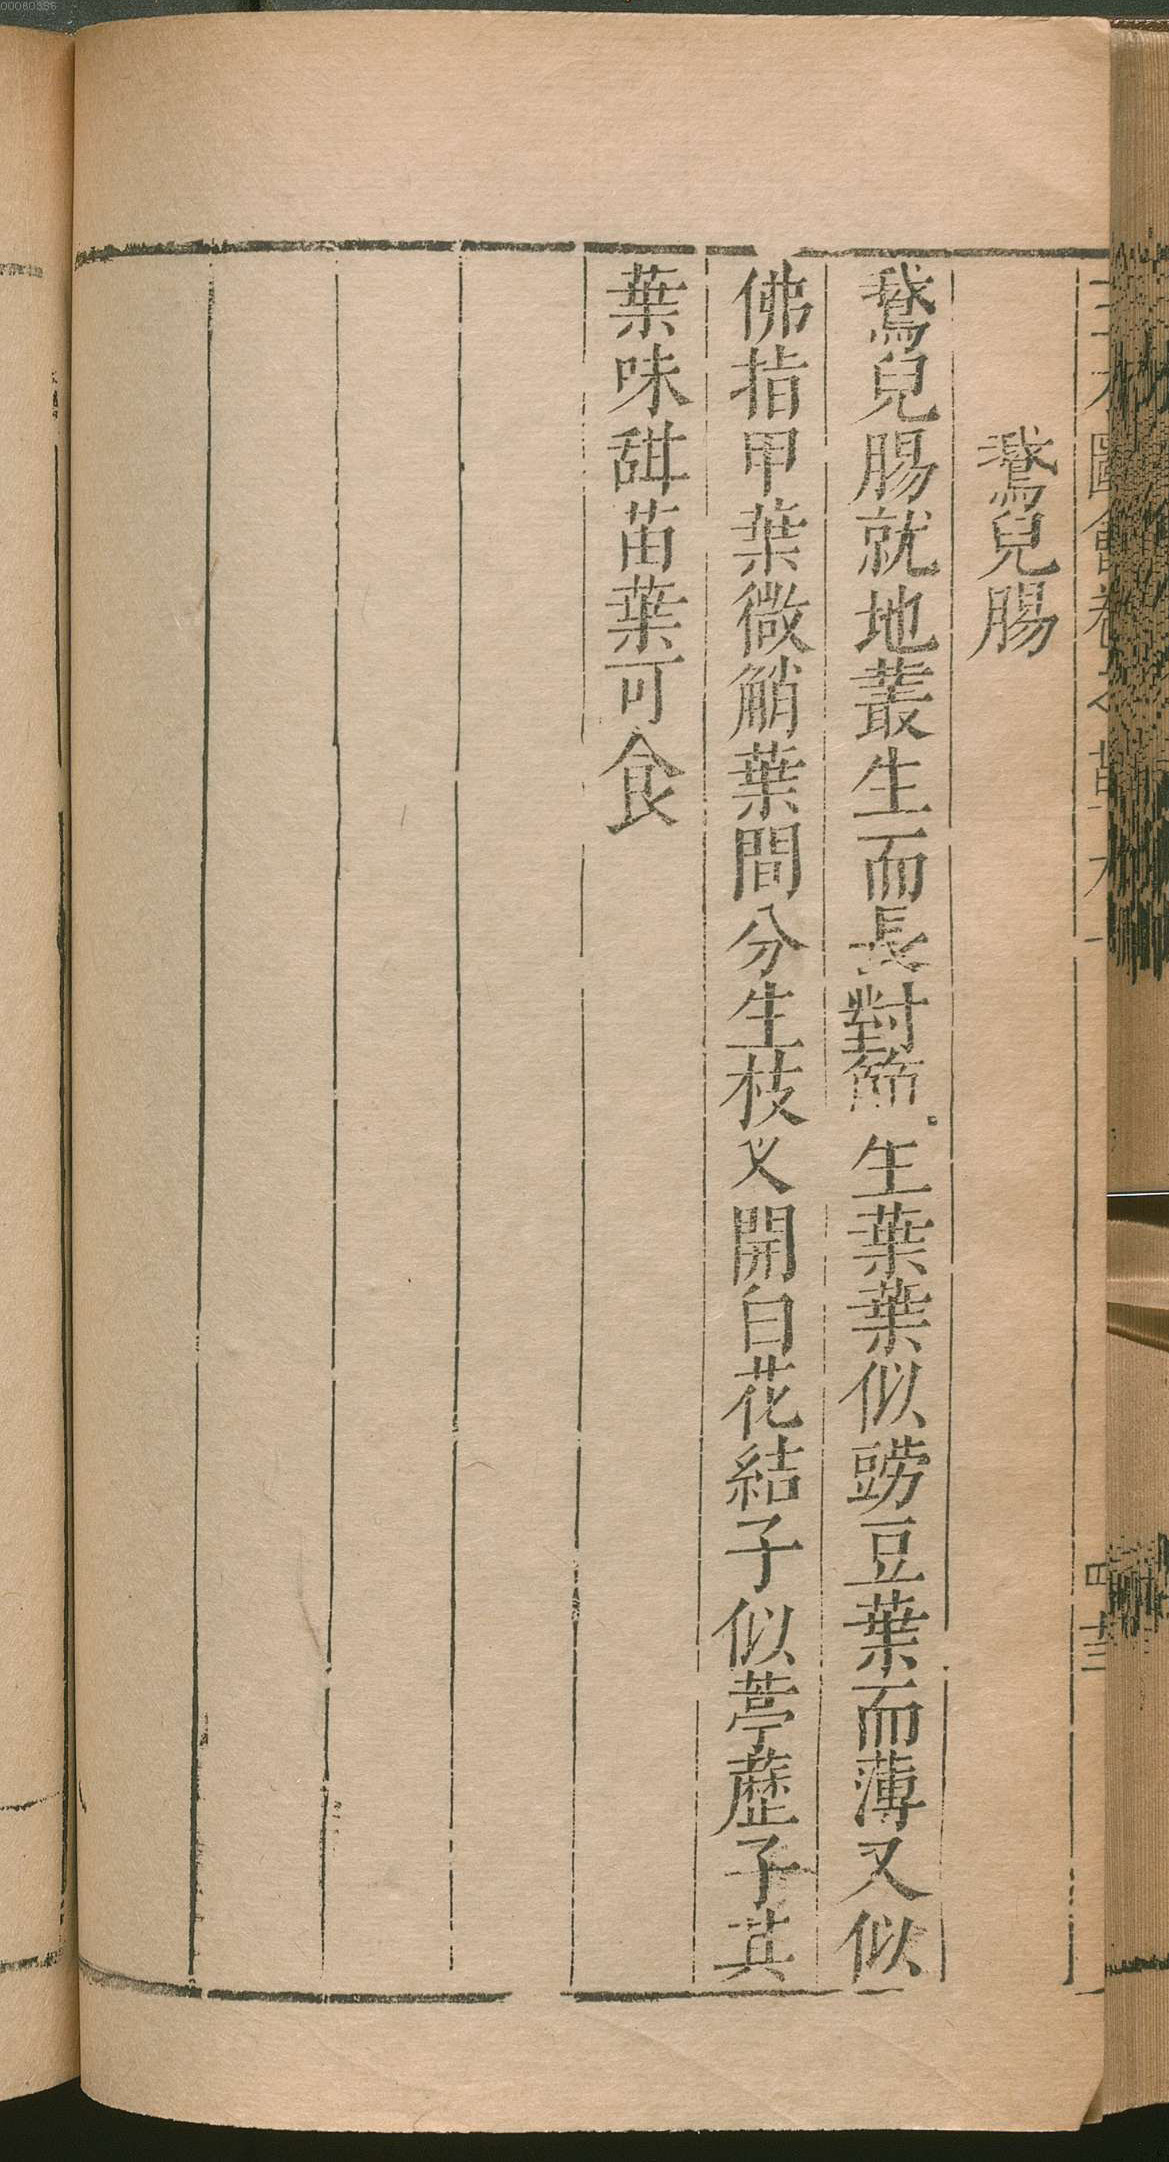 鵞兒腸
鵞兒腸就地叢生而長對節生葉葉似䝁豆葉而薄又似
佛指甲葉微艄葉間分生枝叉開白花結子似葶藶子其
葉味甜苗葉可食
00080356